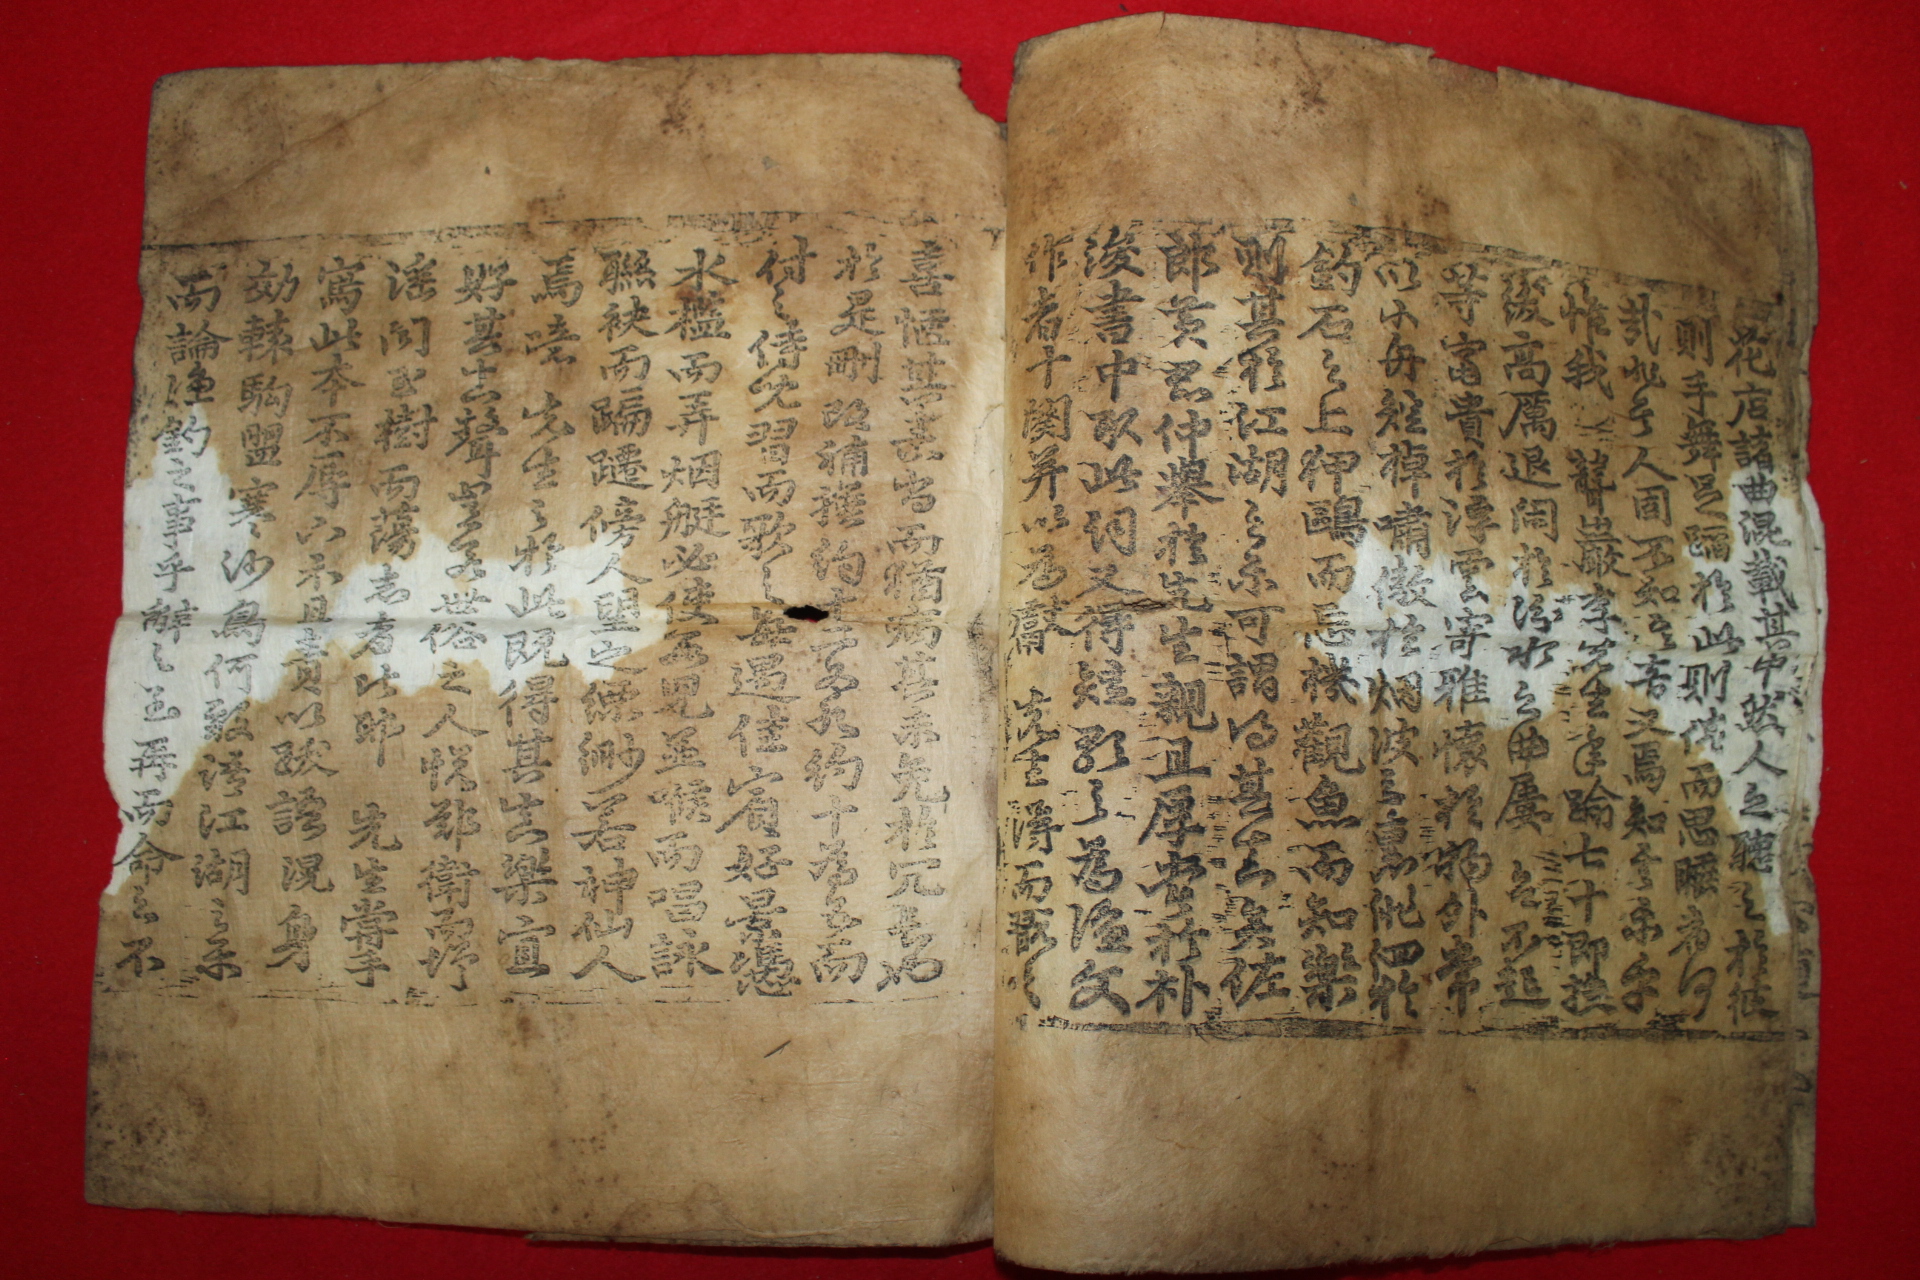 花店諸曲混載其中然人之聽之於彼
則手舞足蹈於此則倦而思睡者何
哉非其人固不知其音又焉知其樂乎
惟我 聾巖李先生年踰七十即投
紱高厲退閒於汾水之曲屢召不起
等富貴於浮雲寄雅懷於物外常
以小舟短棹嘯傲於烟波之裏徘徊於
釣石之上狎鷗而忘機觀魚而知樂
則其於江湖之樂可謂得其真矣佐
郎黃君仲舉於先生親且厚嘗於朴
浚書中取此詞又得短歌之為漁父
作者十闋并以為獻 先生得而翫之
喜愜其素尚而猶病其未免於冗長也
於是刪改補撰約十二為九約十為五而
付之侍兒習而歌之每遇佳賓好景憑
水檻而弄烟艇必使數兒並喉而唱詠
聯袂而蹁躚傍人望之縹緲若神仙人
焉噫 先生之於此既得其真樂宜
好其真聲豈若世俗之人悅鄭衛而增
淫聞玉樹而蕩志者比耶 先生嘗手
寫此本不辱下示且責以跋語滉身
效轅駒盟寒沙鳥何敢語江湖之樂
而論漁釣之事乎辭之至再而命之不